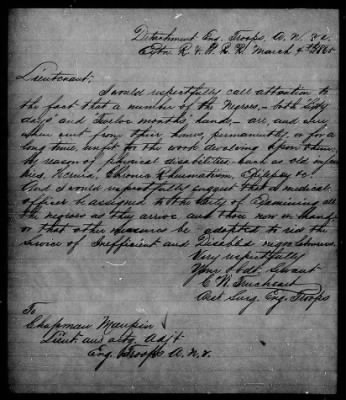 Detachment Eng. Troops, A. N. Va.
Extn R. & D. R. R. March 4th 1865
Lieutenant:
I would respectfully call attention to
the fact that a number of the Negroes,- both "Sixty
days" and "twelve months" hands,- are, and were,
when sent from their homes, permanently, or for a
long time, unfit for the work devolving upon them,
by reason of physical disabilities. such as old infirmi-
ties, Hernia, Chronic Rheumatism, Epilepsy &c.
And I would respectfully suggest that a medical
officer be assigned to the duty of Examining all
the negroes as they arrive and those now on hand;
or that other measures be adopted to rid the
Service of Inefficient and Disabled negro laborers.
Very respectfully
Your Obdt. Servant
C. W. Trueheart
Asst Surg. Eng. Troops
To
Chapman Maupin
Lieut. and actg. Adjt
Eng. Troops A. N. V.